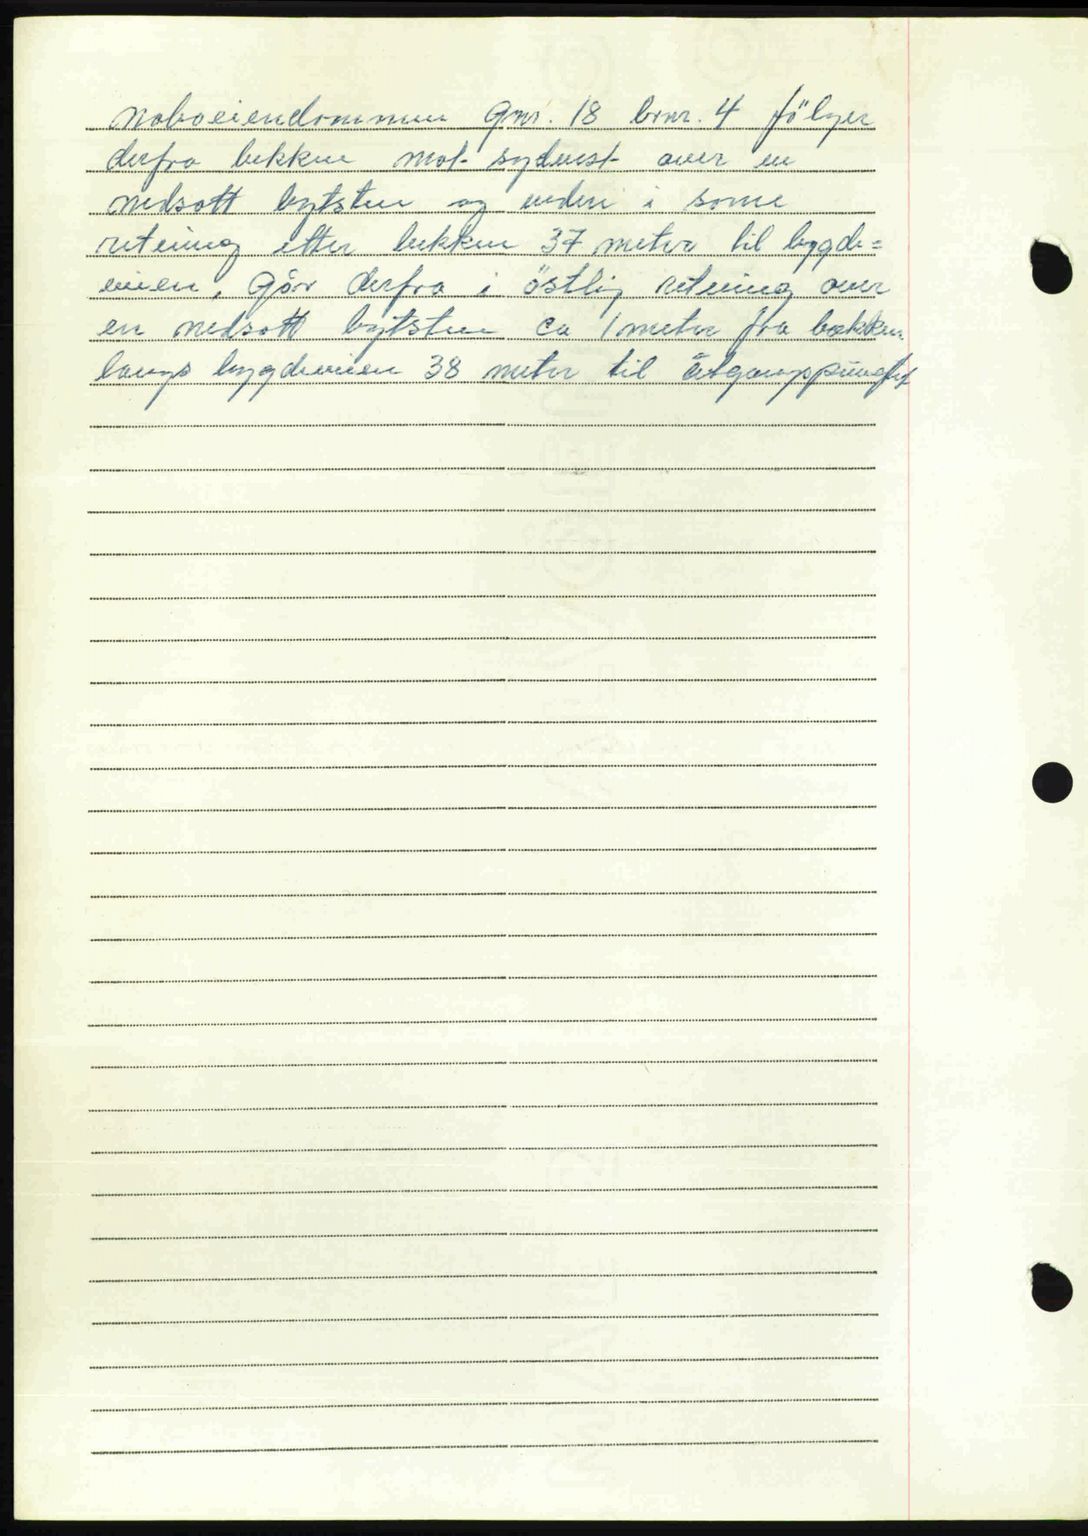 naboeiendommen Gnr. 18 brnr. 4 följer
derfra bekken mot sydvest over en
nedsatt bytsten og videre i same
retning etter bekken 37 meter til bygde=
veien, Går derfra i östlig retning over
en nedsatt bytsten ca 1 meter fra bekken
langs bygdeveien 38 meter til utgangspunktet